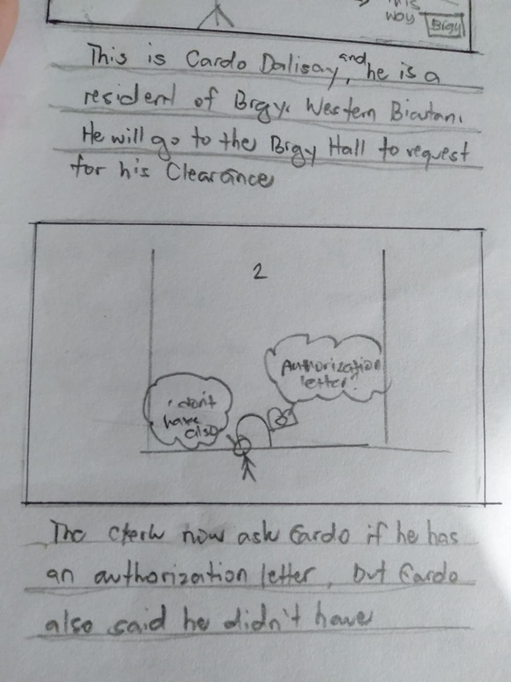 this
way
Brgy
This is Cardo Dalisay, and he is a
resident of Brgy. Western Bicutan.
He will go to the Brgy Hall to request
for his Clearance
2
Authorization
letter?
i don't
have
also
The clerk now ask Cardo if he has
an authorization letter, but Cardo
also said he didn't have